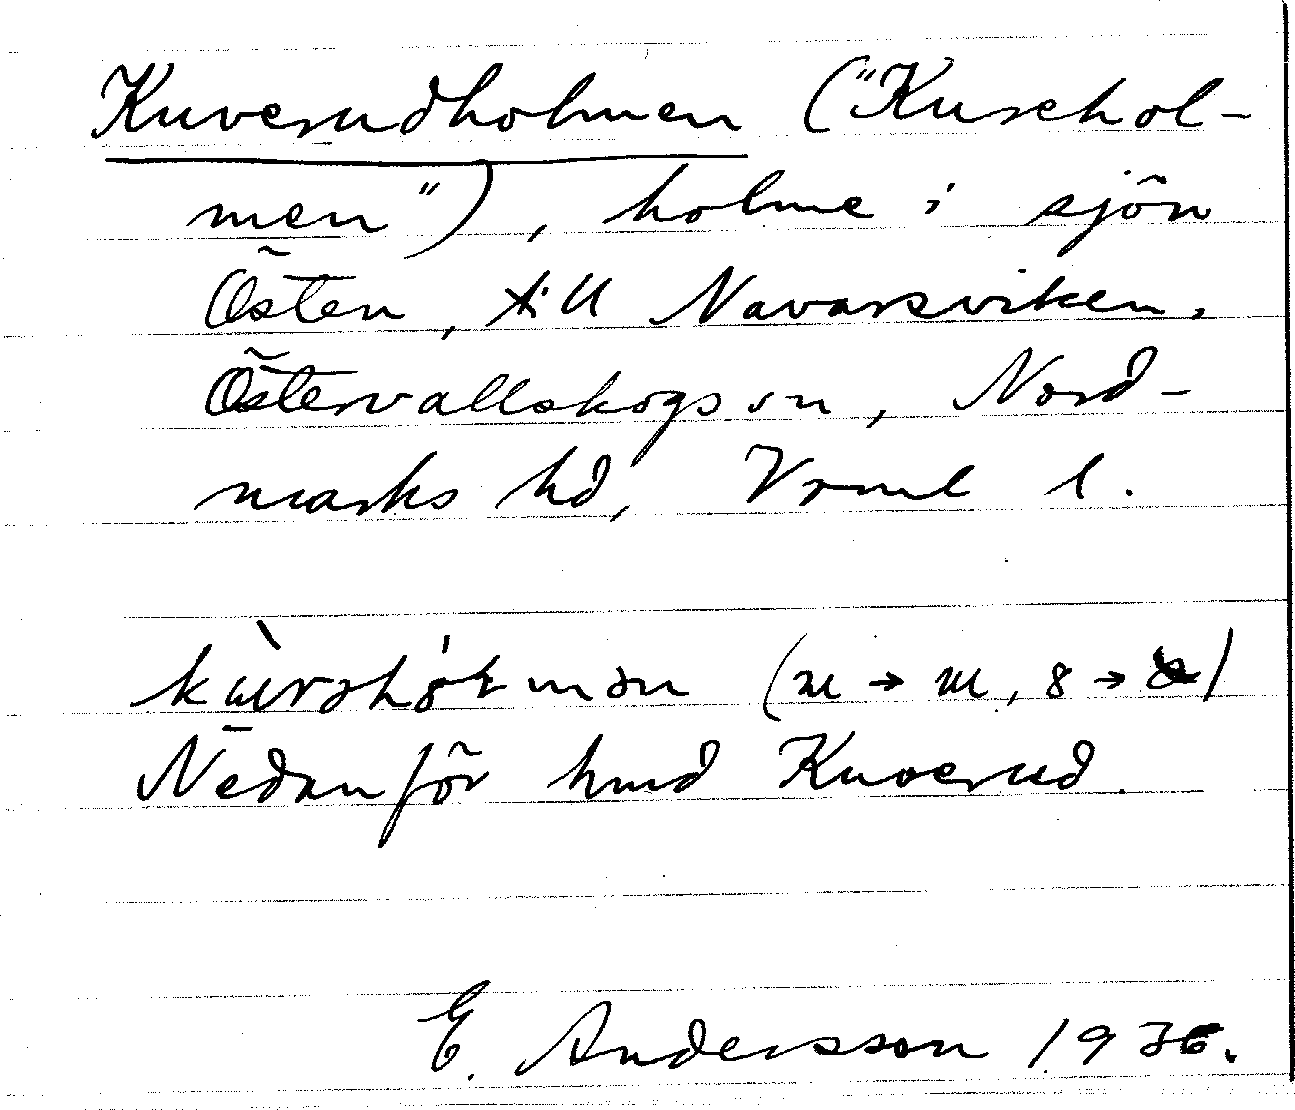 Kuverudholmen ("Kurehol-
men"), holme i sjön
Östen, till Navarsviken,
Östervallskogs sn, Nord-
marks hd, Vrml l.
Nedanför hmd Kuverud
E. Andersson 1936.